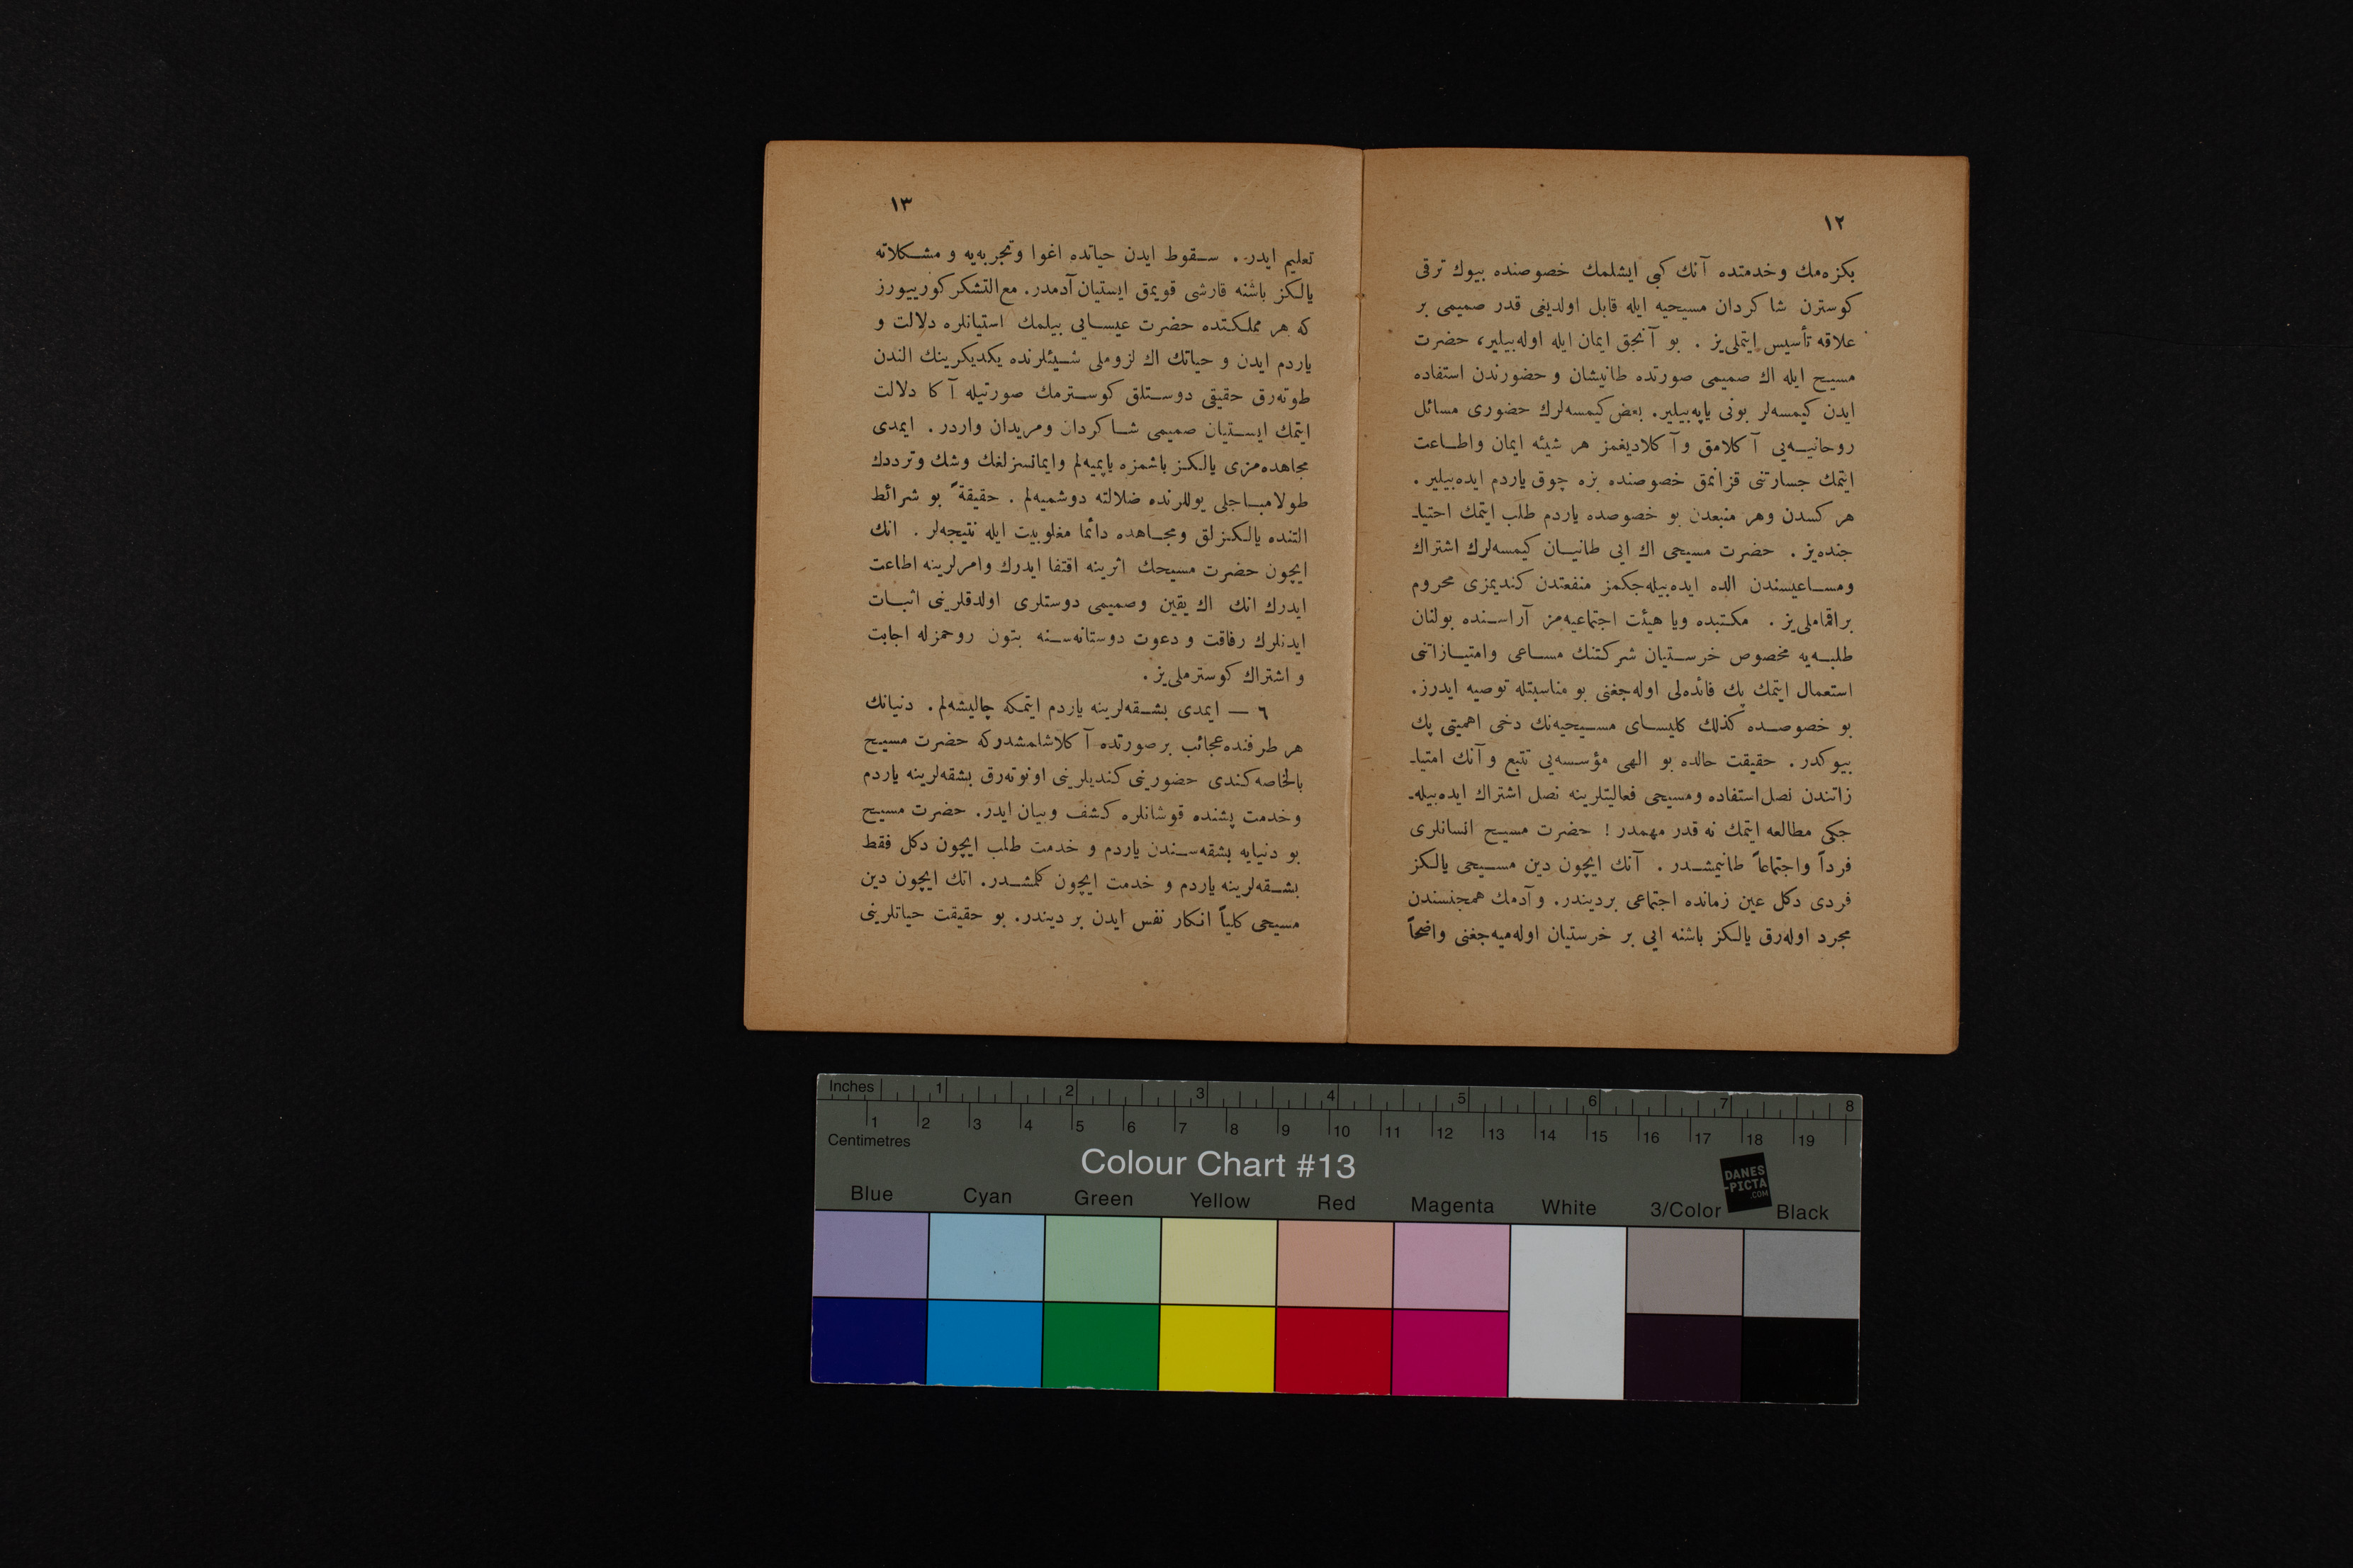 ١٢
بكزه‌مك وخدمتده آنك كبی ایشلمك خصوصنده بیوك ترقی
كوسترن شاكردان مسیحیه ایله قابل اولدیغی قدر صمیمی بر
علاقه تأسیس ایتملی‌یز . بو آنجق ایمان ایله اوله‌بیلیر، حضرت
مسیح ایله اك صمیمی صورتده طانیشان و حضورندن استفاده
ایدن كیمسه‌لر بونی یاپه‌بیلیر. بعض كیمسه‌لرك حضوری مسائل
روحانیـه‌یی آكلامق وآكلادیغمز هر شیئه ایمان واطـاعت
ایتمك جسارتنی قزانمق خصوصنده بزه چوق یاردم ایده‌بیلیر .
هر كسدن وهر منبعدن بو خصوصده یاردم طلب ایتمك احتیا‌ـ
جنده‌یز . حضرت مسیحی اك ایی طانیـان كیمسه‌لرك اشتراك
ومسـاعیسندن الده ایده‌بیله‌جكمز منفعتدن كندیمزی محروم
براقماملی‌یز . مكتبده ویا هیئت اجتماعیه‌مز آراسـنده بولنان
طلبـه‌یه مخصوص خرستیان شركتنك مسـاعی وامتیـازاتنی
استعمال ایتمك پك فائده‌لی اوله‌جغنی بو مناسبتله توصیه ایدرز.
بو خصوصـده كذلك كلیسـای مسـیحیه‌نك دخی اهمیتی پك
بیوكدر . حقیقت حالده بو الهی مؤسسه‌یی تتبع و آنك امتیاـ
زاتندن نصل استفاده ومسیحی فعالیتلرینه نصل اشتراك ایده‌بیله‌ـ
جكی مطالعه ایتمك نه قدر مهمدر ! حضرت مسیح انسانلری
فرداً واجتماعاً طانیمشـدر . آنك ایچون دین مسـیحی یالكز
فردی دكل عین زمانده اجتماعی بردیندر. و آدمك همجنسندن
مجرد اوله‌رق یالكز باشنه ایی بر خرستیان اوله‌میه‌جغنی واضحاً
١٣
تعلیم ایدر. سـقوط ایدن حیاتده اغوا وتجربه‌یه و مشـكلاته
یالكز باشنه قارشی قویمق ایستیان آدمدر. مع‌التشكر كورییورز
كه هر مملكتده حضرت عیسـایی بیلمك استیانلره دلالت و
یاردم ایدن و حیاتك اك لزوملی شـیئلرنده یكدیكرینك الندن
طوته‌رق حقیقی دوسـتلق كوسـترمك صورتیله آكا دلالت
ایتمك ایسـتیان صمیمی شـاكردان ومریدان واردر. ایمدی
مجاهده‌مزی یالكز باشمزه یاپمیه‌لم وایمانسزلغك وشك وترددك
طولامبـاجلی یوللرنده ضلالته دوشمیه‌لم . حقیقةً بو شرائط
التنده یالكزلق ومجـاهده دائما مغلوبیت ایله نتیجه‌لر . انك
ایچون حضرت مسیحك اثرینه اقتفا ایدرك وامرلرینه اطاعت
ایدرك انك اك یقین وصمیمی دوستلری اولدقلرینی اثبـات
ایدنلرك رفاقت و دعوت دوستانه‌سـنه بتون روحمزله اجابت
و اشتراك كوسترملی‌یز .
٦ — ایمدی بشـقه‌لرینه یاردم ایتمكه چالیشه‌لم. دنیانك
هر طرفنده عجائب برصورتده آكلاشلمشدركه حضرت مسیح
بالخاصه كندی حضورینی كندیلرینی اونوته‌رق بشقه‌لرینه یاردم
وخدمت پشنده قوشانلره كشف وبیان ایدر. حضرت مسیح
بو دنیایه بشقه‌سـندن یاردم و خدمت طلب ایچون دكل فقط
بشـقه‌لرینه یاردم و خدمت ایچون كلمشـدر. انك ایچون دین
مسیحی كلیاً انكار نفس ایدن بر دیندر. بو حقیقت حیاتلرینی
Inches 1 2 3 4 5 6 7 8
1 2 3 4 5 6 7 8 9 10 11 12 13 14 15 16 17 18 19
Centimetres
Colour Chart #13
DANES
-PICTA
.COM
Blue Cyan Green Yellow Red Magenta White 3/Color Black